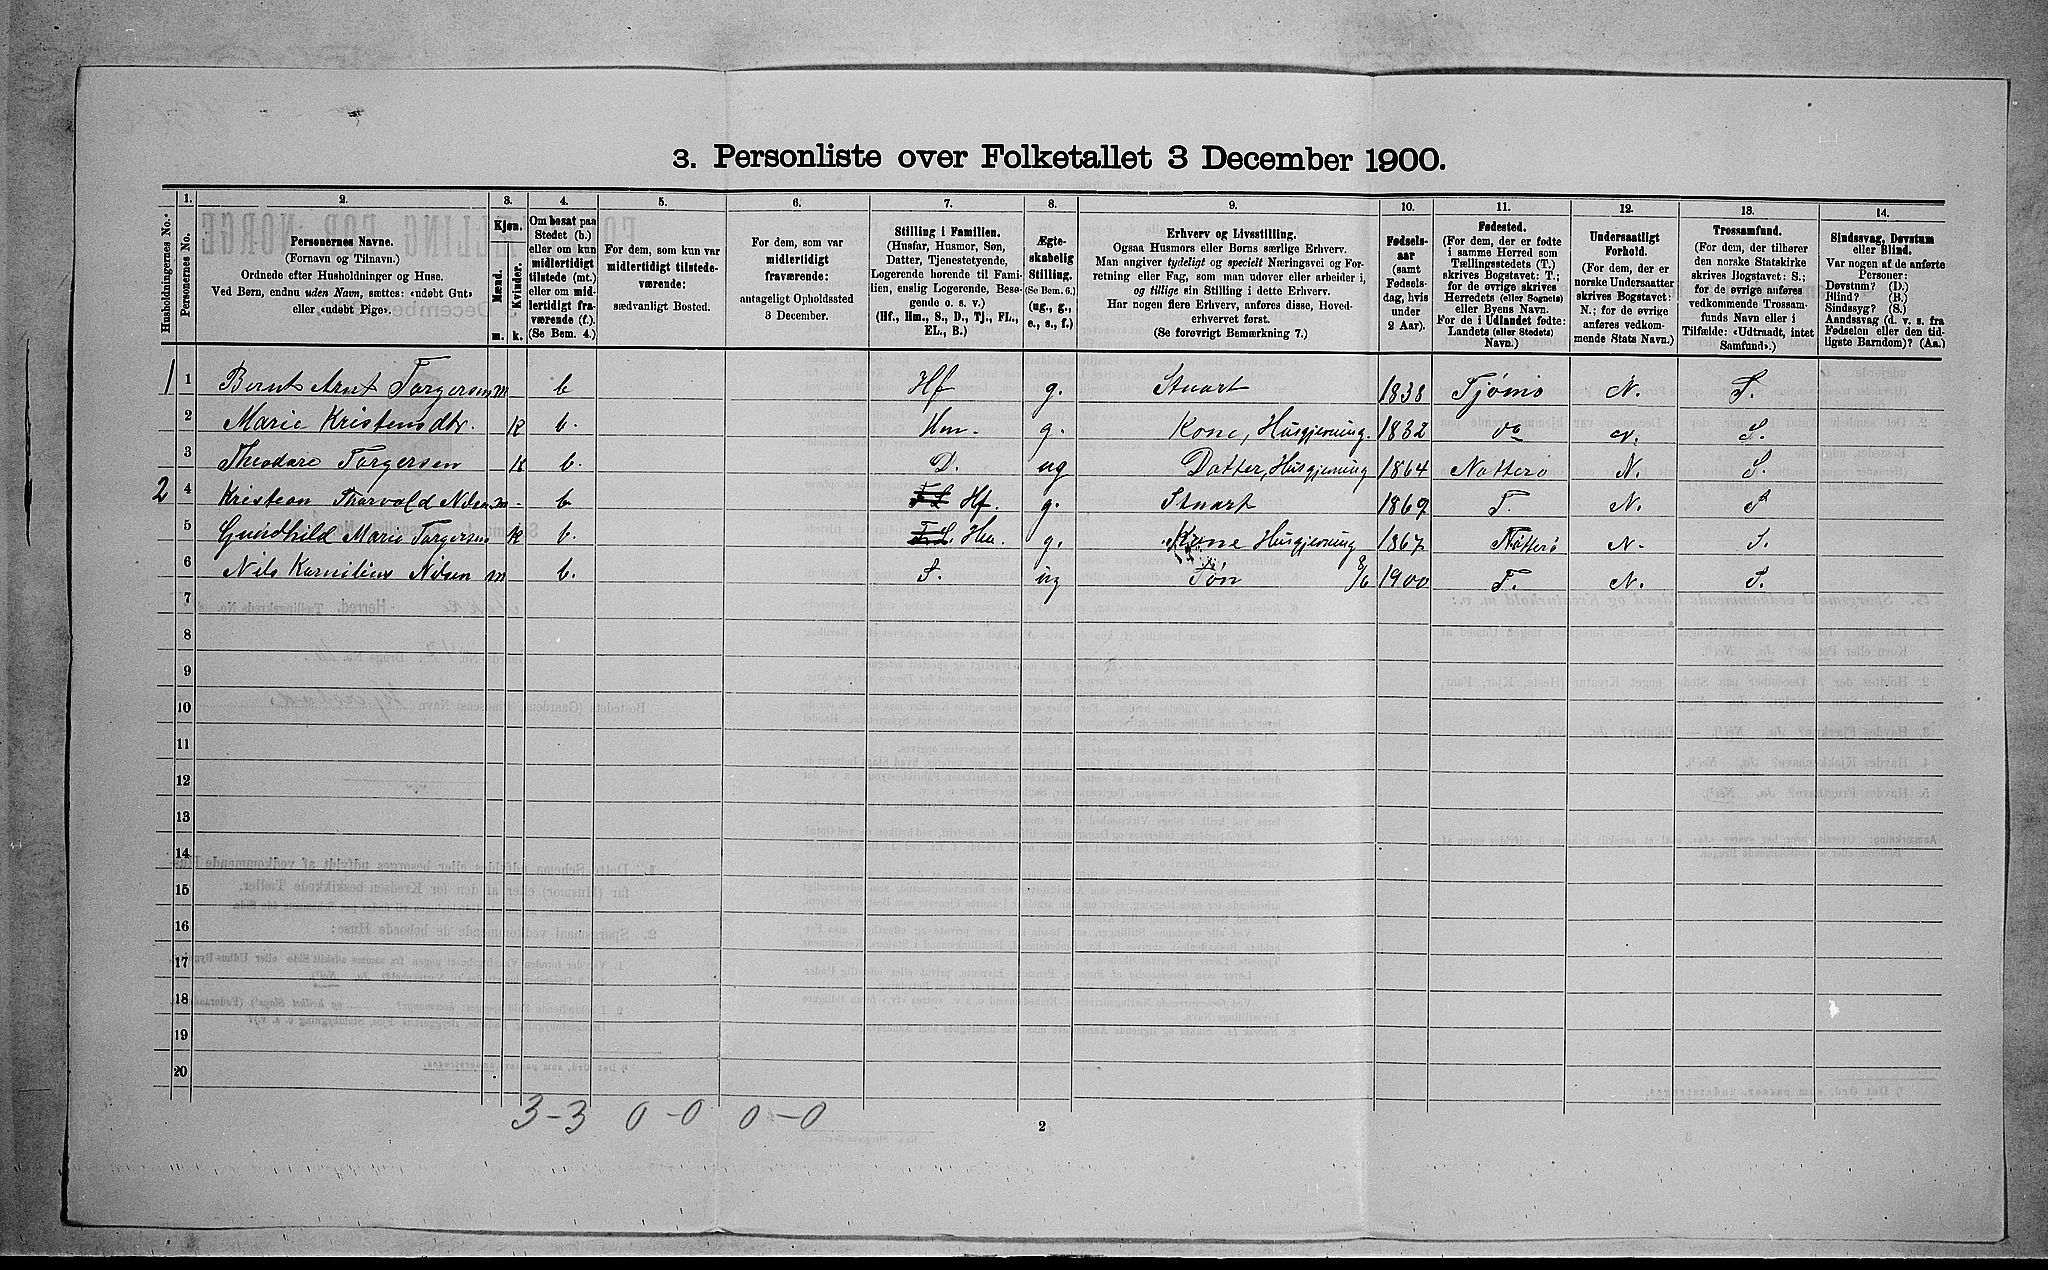 3. Personliste over Folketallet 3 December 1900.
Husholdningernes No.
1. Personernes No.
2. Personernes Navne.
(Fornavn og Tilnavn.)
Ordnede efter Husholdninger og Huse.
Ved Børn, endnu uden Navn, sættes: «udøbt Gut»
eller «udøbt Pige».
3. Kjøn.
Mænd. Kvinder.
m. k.
4.
Om bosat paa
Stedet (b.)
eller om kun
midlertidigt
tilstede (mt.)
eller om mid-
lertidigt fra-
værende (f.)
(Se Bem. 4.)
5.
For dem, som kun var
midlertidigt tilstede-
værende:
sædvanligt Bosted.
6.
For dem, som var
midlertidigt
fraværende:
antageligt Opholdssted
3 December.
7.
Stilling i Familien.
(Husfar, Husmor, Søn,
Datter, Tjenestetyende,
Logerende hørende til Fami-
lien, enslig Logerende, Besø-
gende o. s. v.)
(Hf., Hm., S., D., Tj., FL.,
EL., B.)
8.
Ægte-
skabelig
Stilling.
(Se Bem. 6.)
(ug., g.,
e., s., f.)
9.
Erhverv og Livsstilling.
Ogsaa Husmors eller Børns særlige Erhverv.
Man angiver tydeligt og specielt Næringsvei og For-
retning eller Fag, som man udover eller arbeider i,
og tillige sin Stilling i dette Erhverv.
Har nogen flere Erhverv, anføres disse, Hoved-
erhvervet først.
(Se forøvrigt Bemærkning 7.)
10.
Fødsels-
aar
(samt
Fødsels-
dag, hvis
under
2 Aar).
11.
Fødested.
(For dem, der er fødte
i samme Herred som
Tællingsstedets (T.)
skrives Bogstavet: T.;
for de øvrige skrives
Herredets (eller Sognets)
eller Byens Navn.
For de i Udlandet fødte:
Landets (eller Stedets)
Navn.)
12.
Undersaatligt
Forhold.
(For dem, der er
norske Undersaatter
skrives Bogstavet:
N.; for de øvrige
anføres vedkom-
mende Stats Navn.)
13.
Trossamfund.
(For dem, der tilhører
den norske Statskirke
skrives Bogstavet: S.;
for de øvrige anføres
vedkommende Trossam-
funds Navn eller i
Tilfælde: «Udtraadt, intet
Samfund».)
14.
Sindssvag, Døvstum
eller Blind.
Var nogen af de anførte
Personer:
Døvstum? (D.)
Blind? (B.)
Sindssyg? (S.)
Aandssvag (d. v. s. fra
Fødselen eller den tid-
ligste Barndom)? (Aa.)
1 1 Bernt Arnt Torgersen m b Hf g. Stuart 1838 Tjømø N. S.
2 Marie Kristensdtr. k b. Hm. g. Kone, Husgjerning. 1832 do N. S.
3 Theodore Torgersen k b. D. ug Datter, Husgjerning 1864 Nøtterø N. S.
2 4 Kristean Thorvald Nilsen m b FL Hf. g. Stuart 1869 T. N. S
5 Gundhild Marie Torgersen k b. FL. Hm. g. Kone Husgjerning 1867 Nøtterø N. S.
6 Nils Kornilius Nilsen m b. S. ug Søn 8/6 1900 T. N. S.
7
8
9
10
11
12
13
14
15
16
17
18
19
20
3-3 0-0 0-0
2